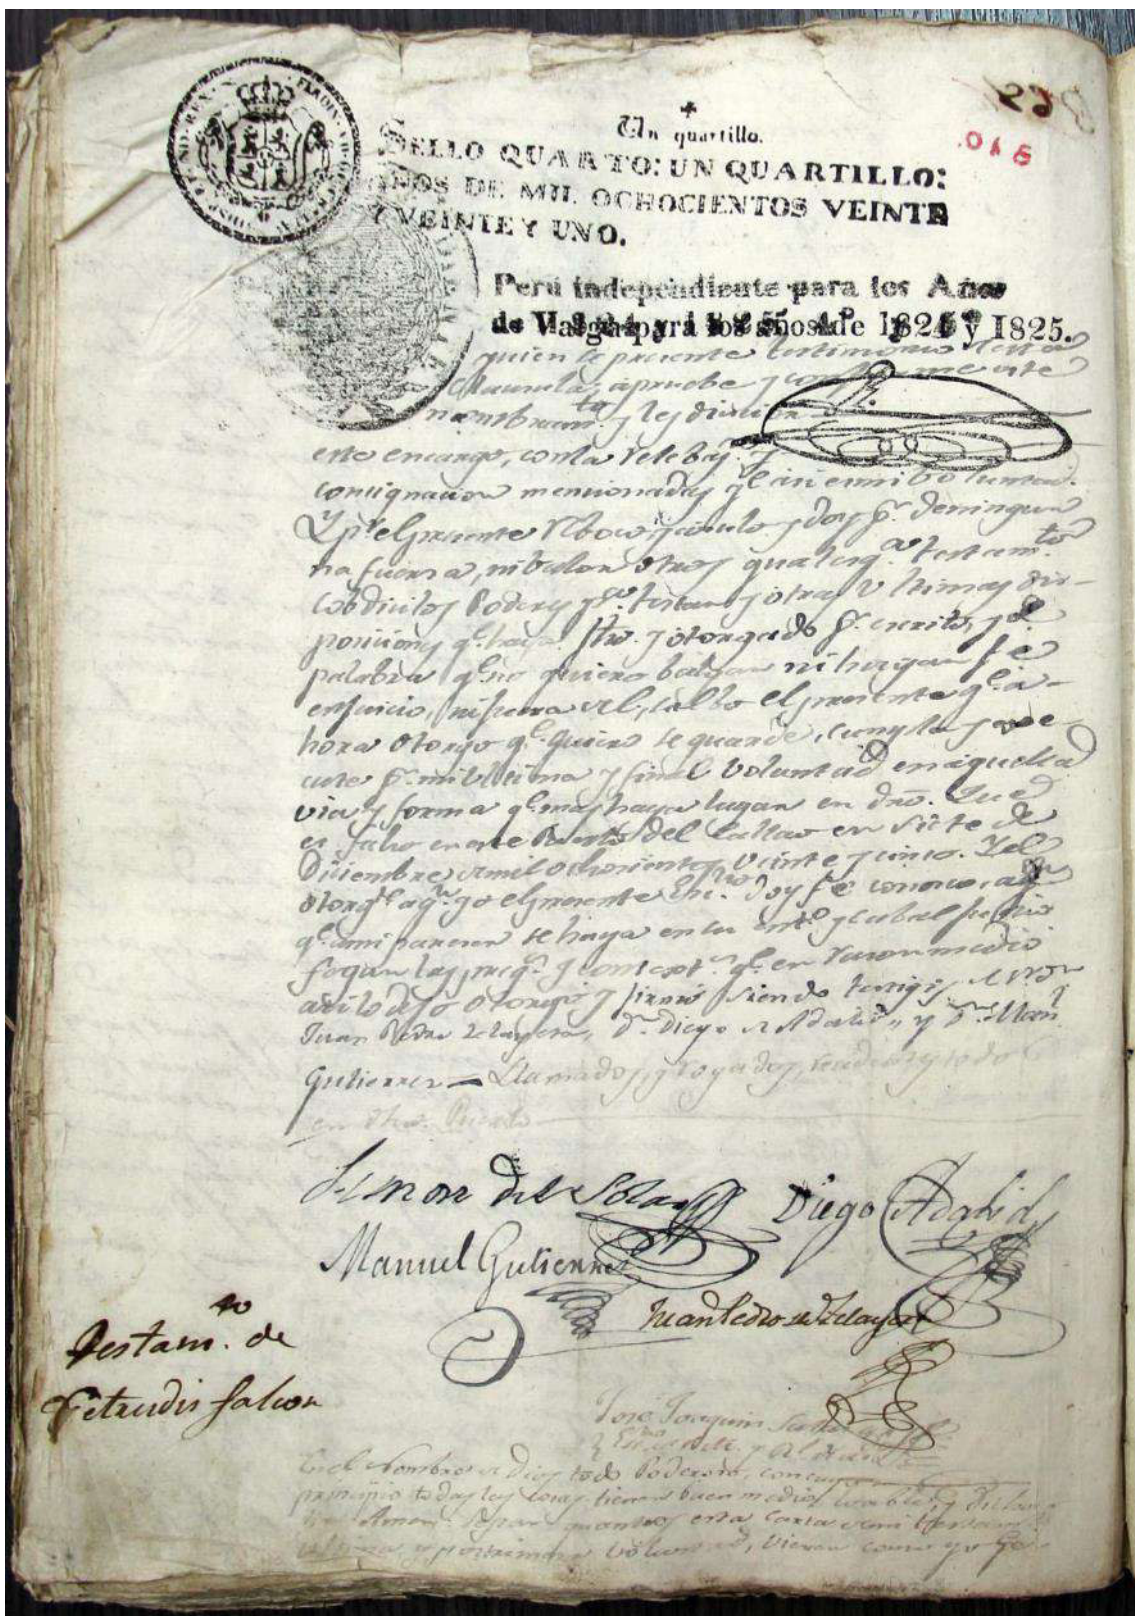 Un quartillo.
SELLO QUARTO: UN QUARTILLO:
AÑOS DE MIL OCHOCIENTOS VEINTE
Y VEINTE Y UNO.
015
Perú independiente para los Años
de Valga para los años de 1824 y 1825.
quien se presente testimonio
Clausula, apruebe y confirme este
nombram.to y les dicier
este encargo, con la releba.n y
consignacion mencionadas q.e
Y p.r el presente reboco, y anulo, y doy p.r de ningun
na fuerza, ni balor otros qualesq.a testam.tos
Cobdicilos Poderes p.a testar y otras Ultimas dis-
posiciones q.e haya fho. y otorgado p.r escrito, y de
palabra q.e no quiero balgan ni hagan fé
en juicio, ni fuera de el, salbo el presente q.e a-
hora otorgo q.e quiero se guarde, cumpla y exe-
cute p.r mi Ultima y final Voluntad en aquella
via y forma q.e mas haya lugar en dro. Que
es fecho en este Puerto del Callao en siete de
Diciembre de mil ochocientos veinte y cinco. Y el
otorg.te a q.n yo el presente Esc.no doy fé conosco,
q.e a mi parecer se haya en su ent.o y cabal juicio
segun las preg.s y context.s q.e en razon
asi lo dijo otorgó y firmó siendo testigos
Juan Pedro Zelayeta, D.n Diego de Adalid, y D.n Man.l
Gutierrez — Llamados, y rogados,
en dho. Puerto
Simon del Solar
Diego Adalid
Manuel Gutierrez
Juan Pedro de Zelayeta
Testam.to de
Getrudis Salcon
José Joaquin
En el Nombre de Dios todo Poderoso, con cuyo
principio todas las cosas tienen buen medio,
Amen. Sepan quantos esta Carta de mi testam.to
ultima, y postrimera Voluntad, vieren como yo Ge-